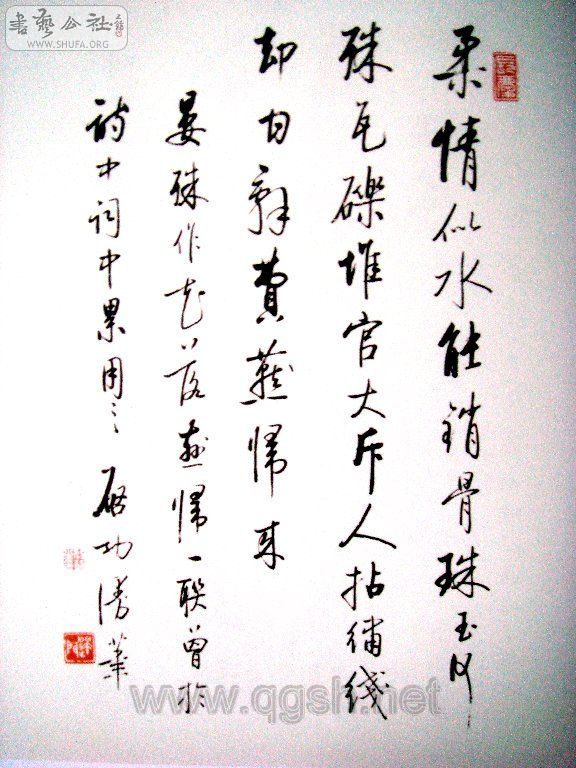 書藝公社
WWW.SHUFA.ORG
柔情似水能銷骨珠玉何
殊瓦礫堆官大斥人拈繡綫
却自辭費燕歸來
晏殊作花落燕歸一聯曾於
詩中詞中累用之 啟功
www.qgsh.net